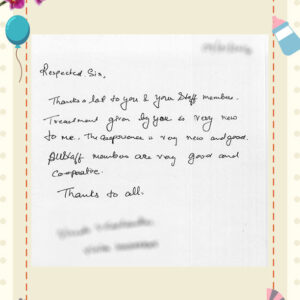 Respected Sir,
Thanks a lot to you & your Staff member.
Treatment given by you is very new
to me. The experience is very new and good.
All Staff members are very good and
Thanks to all.